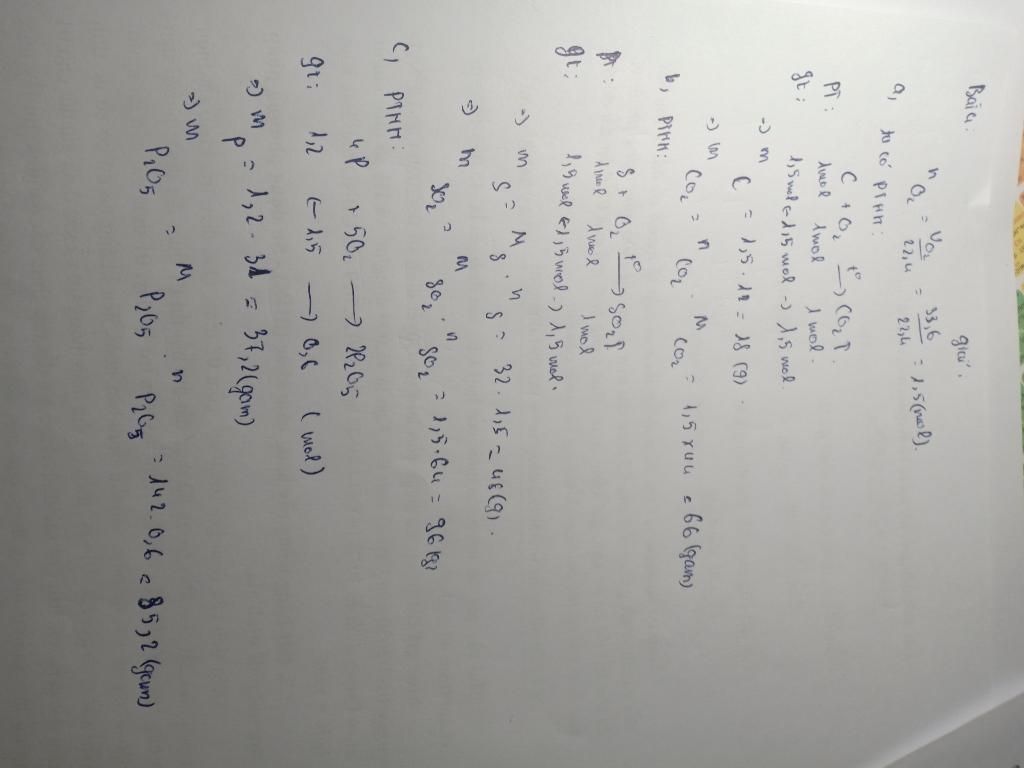 giải:
Bài 4:
n O2 = VO2/22,4 = 33,6/22,4 = 1,5 (mol).
a, ta có PTHH:
C + O2 —t°→ CO2↑.
PT: 1mol 1mol 1mol.
gt: 1,5mol ← 1,5mol → 1,5mol
=> m C = 1,5 . 12 = 18 (g).
=> m CO2 = n CO2 . M CO2 = 1,5 x 44 = 66 (gam)
b, PTHH:
S + O2 —t°→ SO2↑
PT: 1mol 1mol 1mol
gt: 1,5mol ← 1,5mol → 1,5mol.
=> m S = M S . n S = 32 . 1,5 = 48 (g).
=> m SO2 = M SO2 . n SO2 = 1,5 . 64 = 96 (g)
c, PTHH:
4P + 5O2 —→ 2P2O5
gt: 1,2 ← 1,5 —→ 0,6 (mol)
=> m P = 1,2 . 31 = 37,2 (gam)
=> m P2O5 = M P2O5 . n P2O5 = 142 . 0,6 = 85,2 (gam)